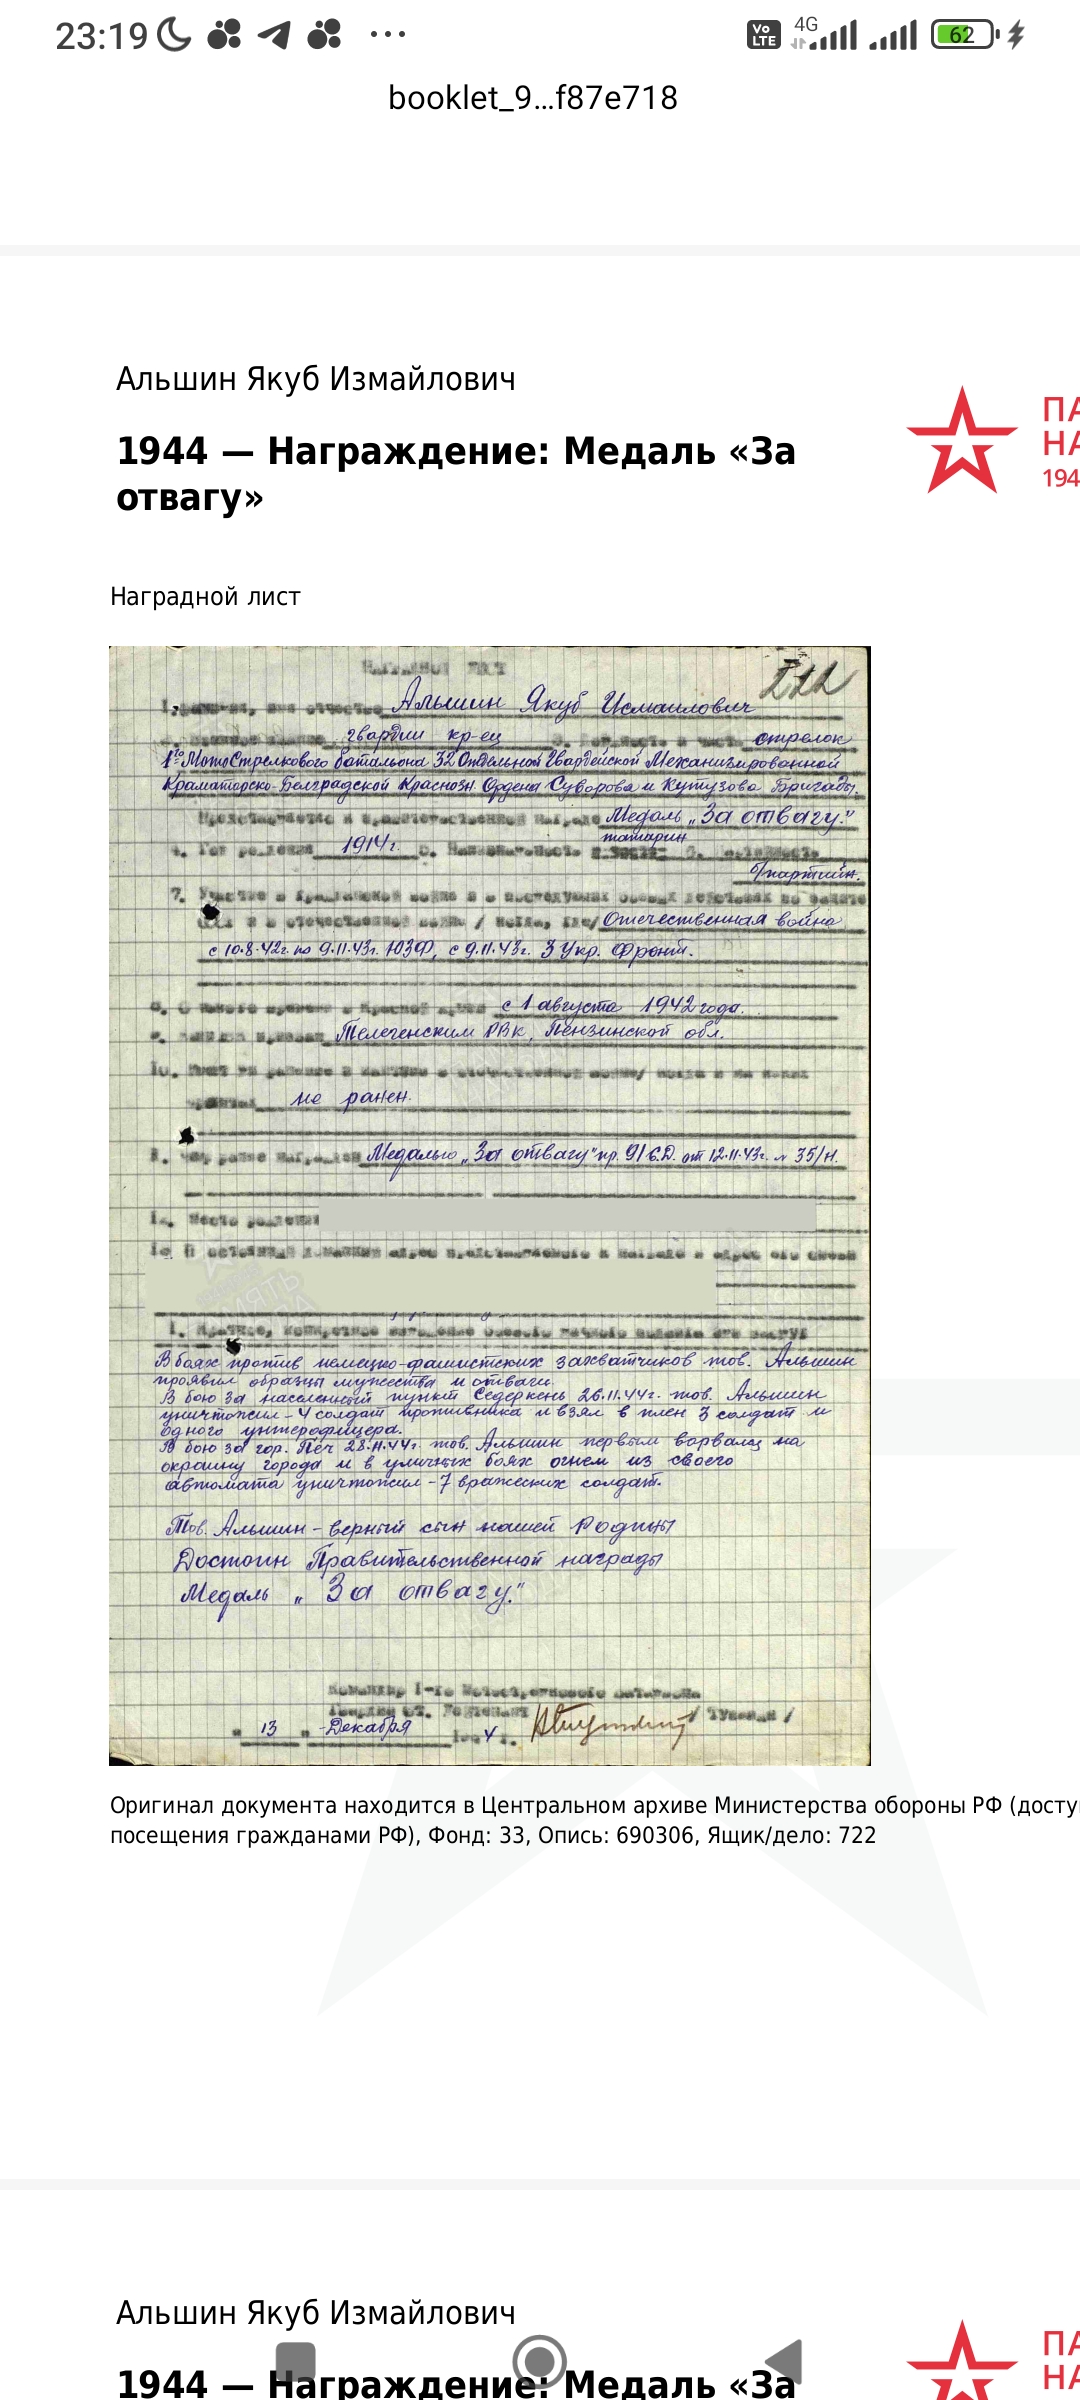 23:19
Vo LTE 4G 62
booklet_9...f87e718
Альшин Якуб Измайлович
1944 — Награждение: Медаль «За
отвагу»
ПА
НА
194
Наградной лист
НАГРАДНОЙ ЛИСТ
Альшин Якуб Исмаилович
гвардии кр-ец стрелок
1го МотоСтрелкового батальона 32 Отдельной Гвардейской Механизированной
Краматорско-Белградской Краснозн. Ордена Суворова и Кутузова Бригады.
Медаль „За отвагу."
татарин
4. Год рождения 1914г. 5. Национальность
б/партийн.
7. Участие в гражданской войне и в последующих боевых действиях по защите
СССР и в отечественной войне / когда, где/ Отечественная война
с 10.8.42г. по 9.11.43г. ЮЗФ, с 9.11.43г. 3 Укр. Фронт.
8. С какого времени в Красной армии с 1 августа 1942 года.
РВК, Пензинской обл.
не ранен.
Чем ранее награжден Медалью „За отвагу" пр. 91 С.Д. от 12.11.43г. № 35/н.
Место рождения
1. Краткое, конкретное изложение боевого личного подвига или заслуг
В боях против немецко-фашистских захватчиков тов. Альшин
проявил образцы мужества и отваги.
В бою за населенный пункт Седеркень 26.11.44г. тов. Альшин
уничтожил - 4 солдат противника и взял в плен 3 солдат и
одного унтерофицера.
В бою за гор. Печ 28.11.44г. тов. Альшин первым ворвался на
окраину города и в уличных боях огнем из своего
автомата уничтожил - 7 вражеских солдат.
Тов. Альшин - верный сын нашей Родины
Достоин Правительственной награды
Медаль „За отвагу."
Командир 1-го Мотострелкового батальона
Гвардии ст. Лейтенант
" 13 " Декабря 1944 г.
Оригинал документа находится в Центральном архиве Министерства обороны РФ (досту
посещения гражданами РФ), Фонд: 33, Опись: 690306, Ящик/дело: 722
Альшин Якуб Измайлович
1944 — Награждение: Медаль «За
ПА
НА